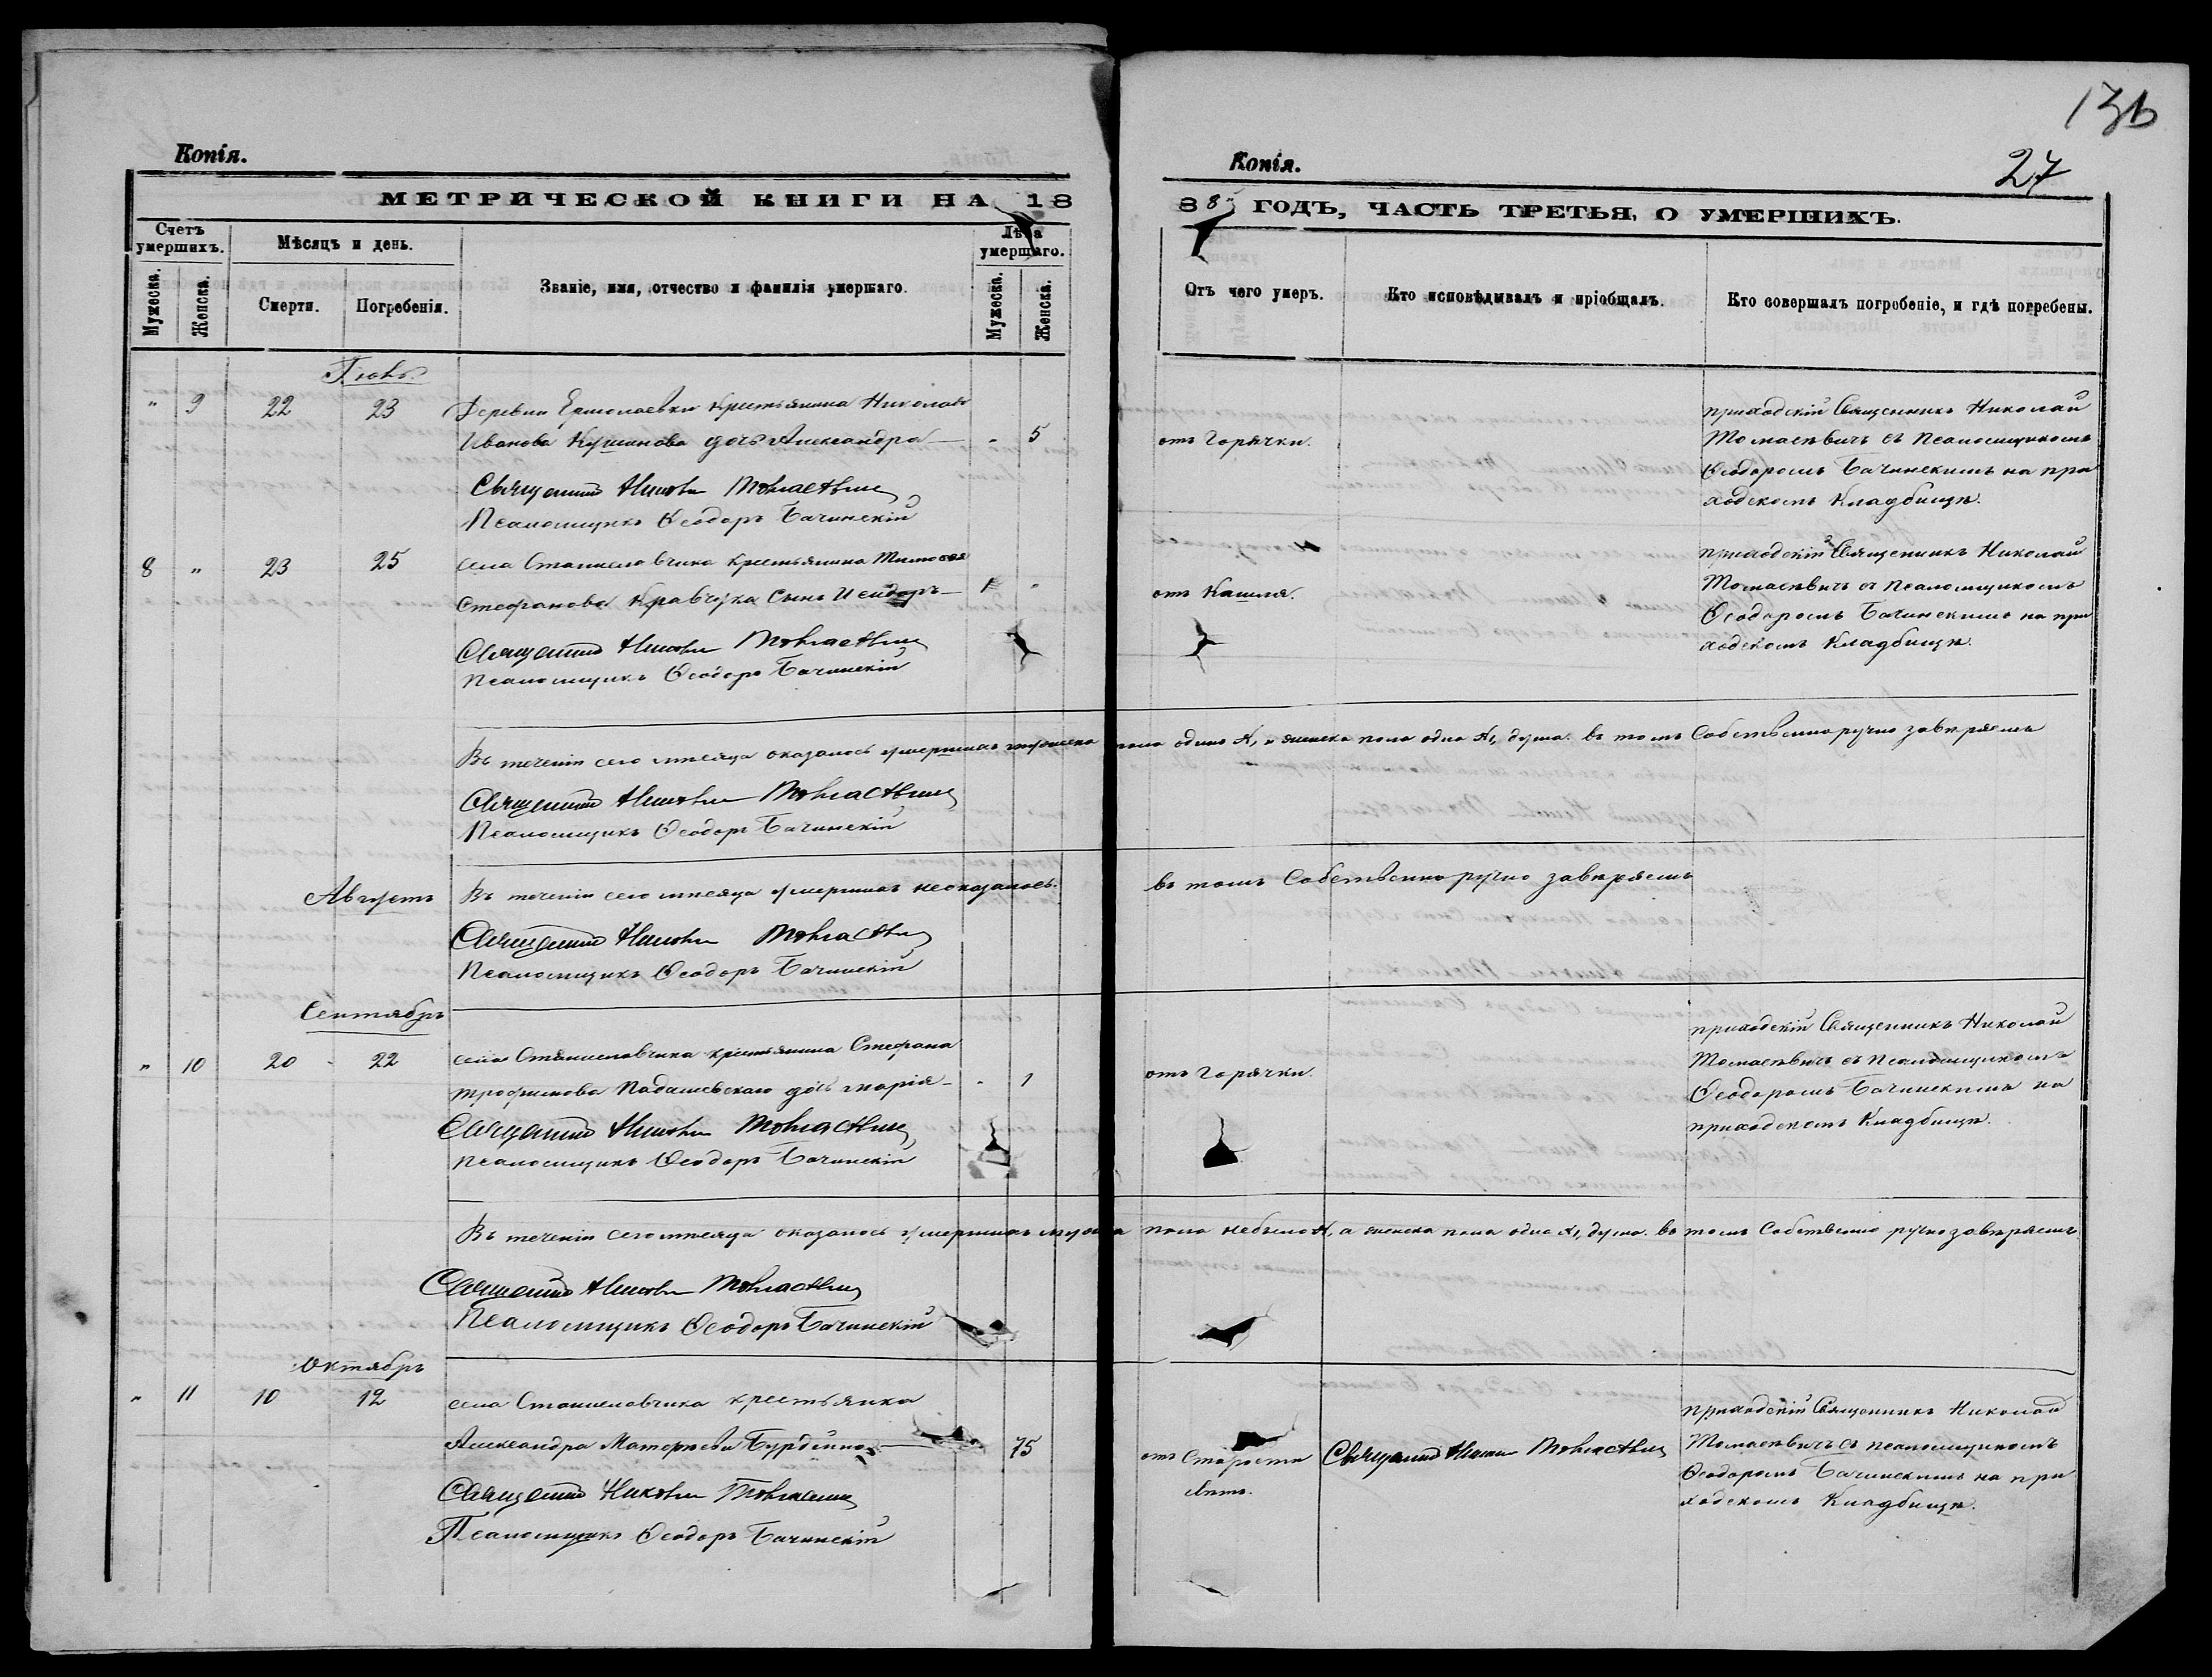 136
Копія.
Копія.
27
МЕТРИЧЕСКОЙ КНИГИ НА 18
88 ГОДЪ, ЧАСТЬ ТРЕТЬЯ, О УМЕРШИХЪ.
Счетъ умершихъ.
Мѣсяцъ и день.
Званіе, имя, отчество и фамилія умершаго.
Лѣта умершаго.
Мужеска.
Женска.
Смерти.
Погребенія.
Мужеска.
Женска.
Отъ чего умеръ.
Кто исповѣдывалъ и пріобщалъ.
Кто совершалъ погребеніе, и гдѣ погребены.
" 9 22 23 Деревни Ермолаевки Крестьянина Николая
Иванова дочь Александра - 5
Священникъ Николай Томасѣвичъ
Псаломщикъ Ѳеодоръ Бачинскій
отъ Горячки.
приходскій Священникъ Николай
Томасѣвичъ съ Псаломщикомъ
Ѳеодоромъ Бачинскимъ на при
ходскомъ Кладбищѣ.
8 " 23 25 села Станиславчика Крестьянина
Стефанова Кравчука Сынъ Исидоръ "
Священникъ Николай Томасѣвичъ
Псаломщикъ Ѳеодоръ Бачинскій
отъ Кашля.
приходскій Священникъ Николай
Томасѣвичъ съ Псаломщикомъ
Ѳеодоромъ Бачинскимъ на при
ходскомъ Кладбищѣ.
Въ теченіи сего мѣсяца оказалось умершихъ мужеска пола одинъ /1, и женска пола одна /1, душа. въ томъ Собственноручно завѣряемъ
Священникъ Николай Томасѣвичъ
Псаломщикъ Ѳеодоръ Бачинскій
Августъ Въ теченіи сего мѣсяца умершихъ неоказалось. въ томъ Собственно ручно завѣряемъ
Священникъ Николай Томасѣвичъ
Псаломщикъ Ѳеодоръ Бачинскій
Сентябрь
" 10 20 22 села Станиславчика крестьянина Стефана
Трофимова дочь Марія - - 1
Священникъ Николай Томасѣвичъ
Псаломщикъ Ѳеодоръ Бачинскій
отъ Горячки.
приходскій Священникъ Николай
Томасѣвичъ съ Псаломщикомъ
Ѳеодоромъ Бачинскимъ на
приходскомъ Кладбищѣ.
Въ теченіи сего мѣсяца оказалось умершихъ мужска пола небыло, а женска пола одна /1, душа. въ томъ Собственно ручно завѣряемъ.
Священникъ Николай Томасѣвичъ
Псаломщикъ Ѳеодоръ Бачинскій
Октябрь
" 11 10 12 села Станиславчика крестьянка
Александра 75
Священникъ Николай Томасѣвичъ
Псаломщикъ Ѳеодоръ Бачинскій
отъ Старости
лѣтъ.
Священникъ Николай Томасѣвичъ
Приходскій Священникъ Николай
Томасѣвичъ съ псаломщикомъ
Ѳеодоромъ Бачинскимъ на при
ходскомъ Кладбищѣ.